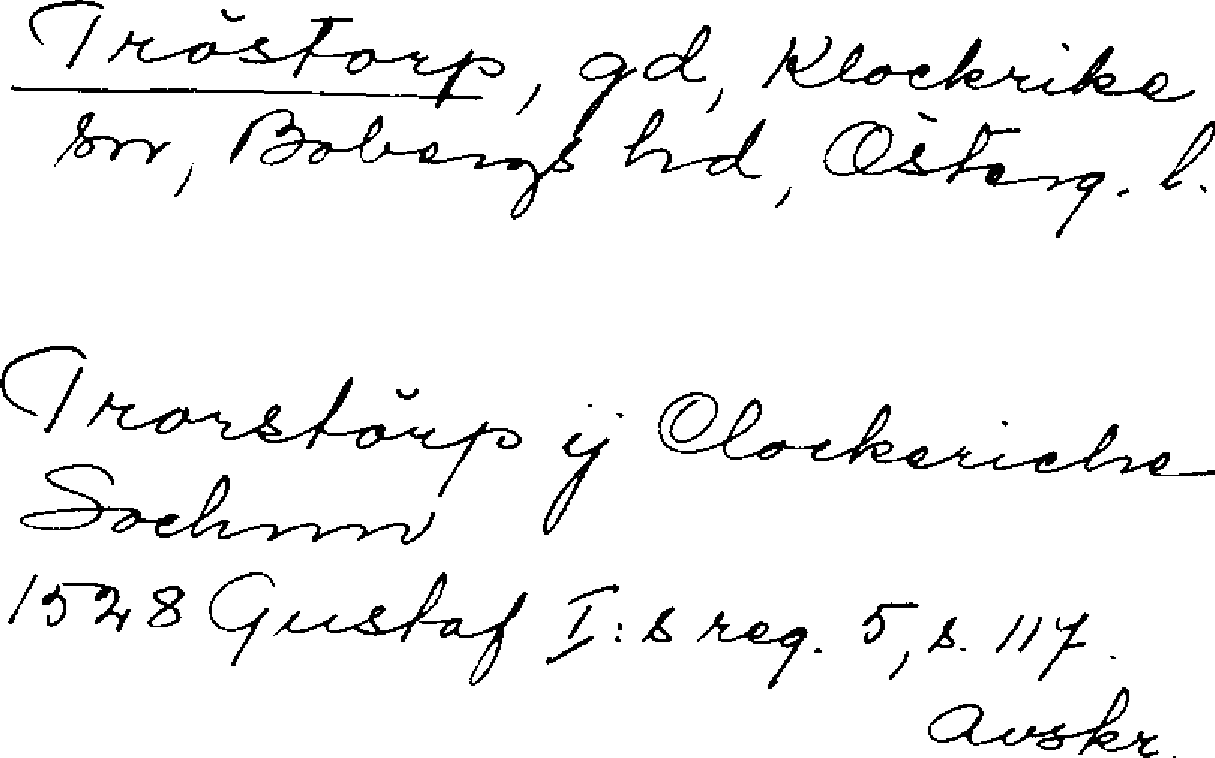 Tröstorp, gd, Klockrike
sn, Bobergs hd, Österg. l.
Trorstörp ij Clockeriche
Sochnn
1528 Gustaf I:s reg. 5, s. 117.
Avskr.